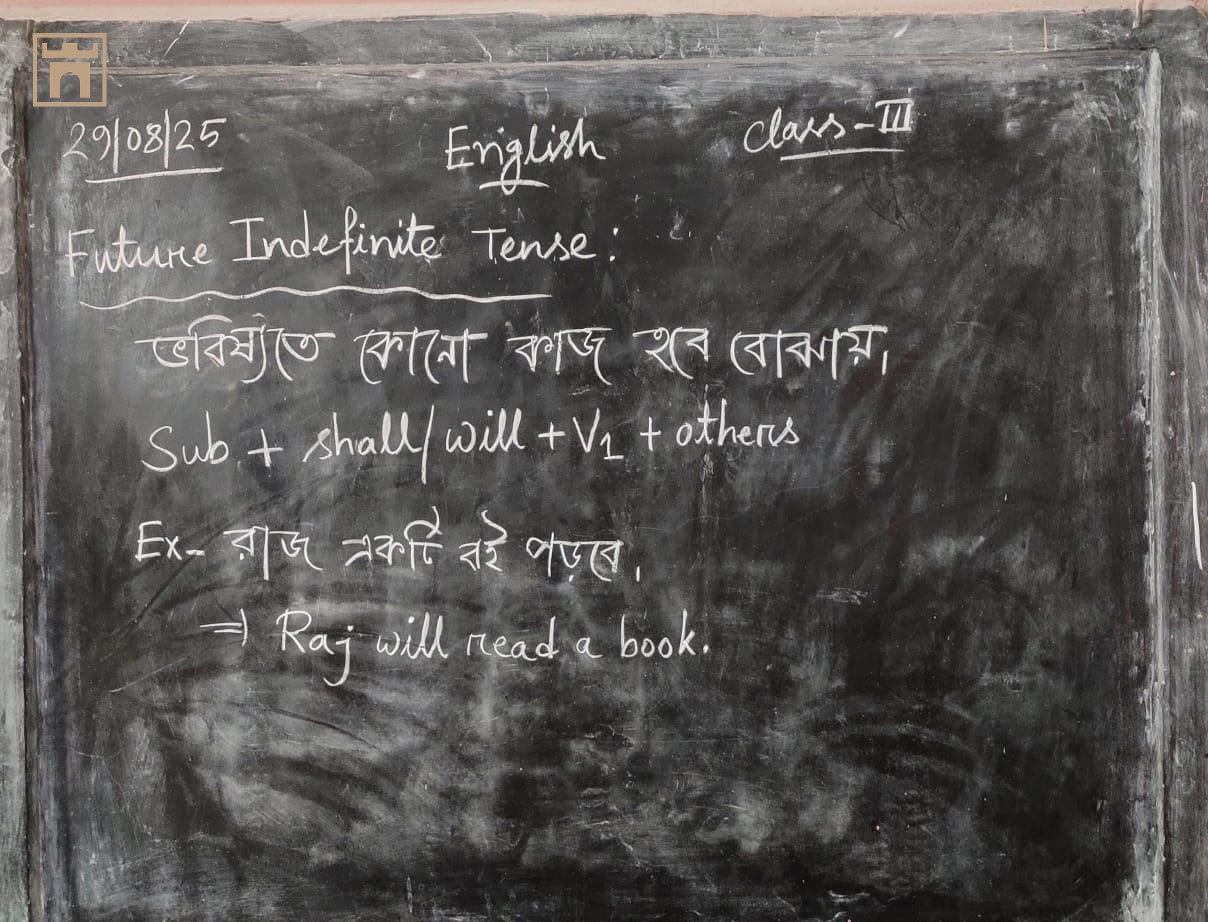 29/08/25 English Class-III
Future Indefinite Tense:
ভবিষ্যতে কোনো কাজ হবে বোঝায়।
Sub + shall/will + V1 + others
Ex- রাজ একটি বই পড়বে।
⇒ Raj will read a book.